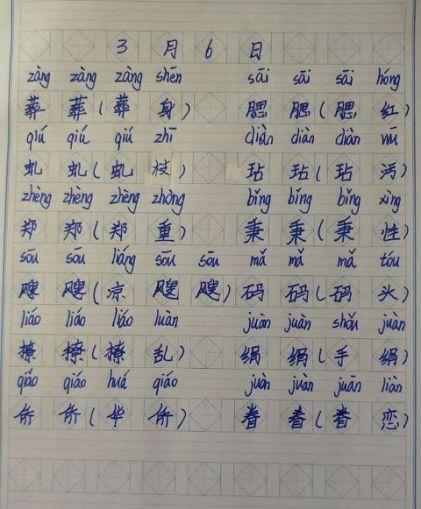 3 月 6 日
zàng zàng zàng shēn sāi sāi sāi hóng
葬 葬 ( 葬 身 ) 腮 腮 ( 腮 红 )
qiú qiú qiú zhī diàn diàn diàn wū
虬 虬 ( 虬 枝 ) 玷 玷 ( 玷 污 )
zhèng zhèng zhèng zhòng bǐng bǐng bǐng xìng
郑 郑 ( 郑 重 ) 秉 秉 ( 秉 性 )
sōu sōu liáng sōu sōu mǎ mǎ mǎ tóu
飕 飕 ( 凉 飕 飕 ) 码 码 ( 码 头 )
liáo liáo liáo luàn juàn juàn shǒu juàn
撩 撩 ( 撩 乱 ) 绢 绢 ( 手 绢 )
qiáo qiáo huá qiáo juàn juàn juān liàn
侨 侨 ( 华 侨 ) 眷 眷 ( 眷 恋 )